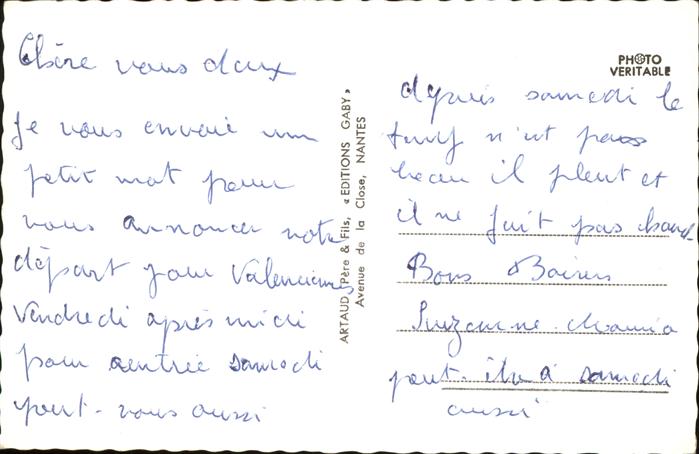 Chère vous deux
Je vous envoie un
petit mot pour
vous annoncer notre
départ pour Valenciennes
Vendredi après midi
pour rentrée samedi
peut-vous aussi
ARTAUD, Père & Fils, « EDITIONS GABY »
Avenue de la Close, NANTES
PHOTO
VERITABLE
depuis samedi le
n'est pas
beau il pleut et
il ne fait pas chaud
Bons Baisers
Suzanne
peut- à samedi
aussi